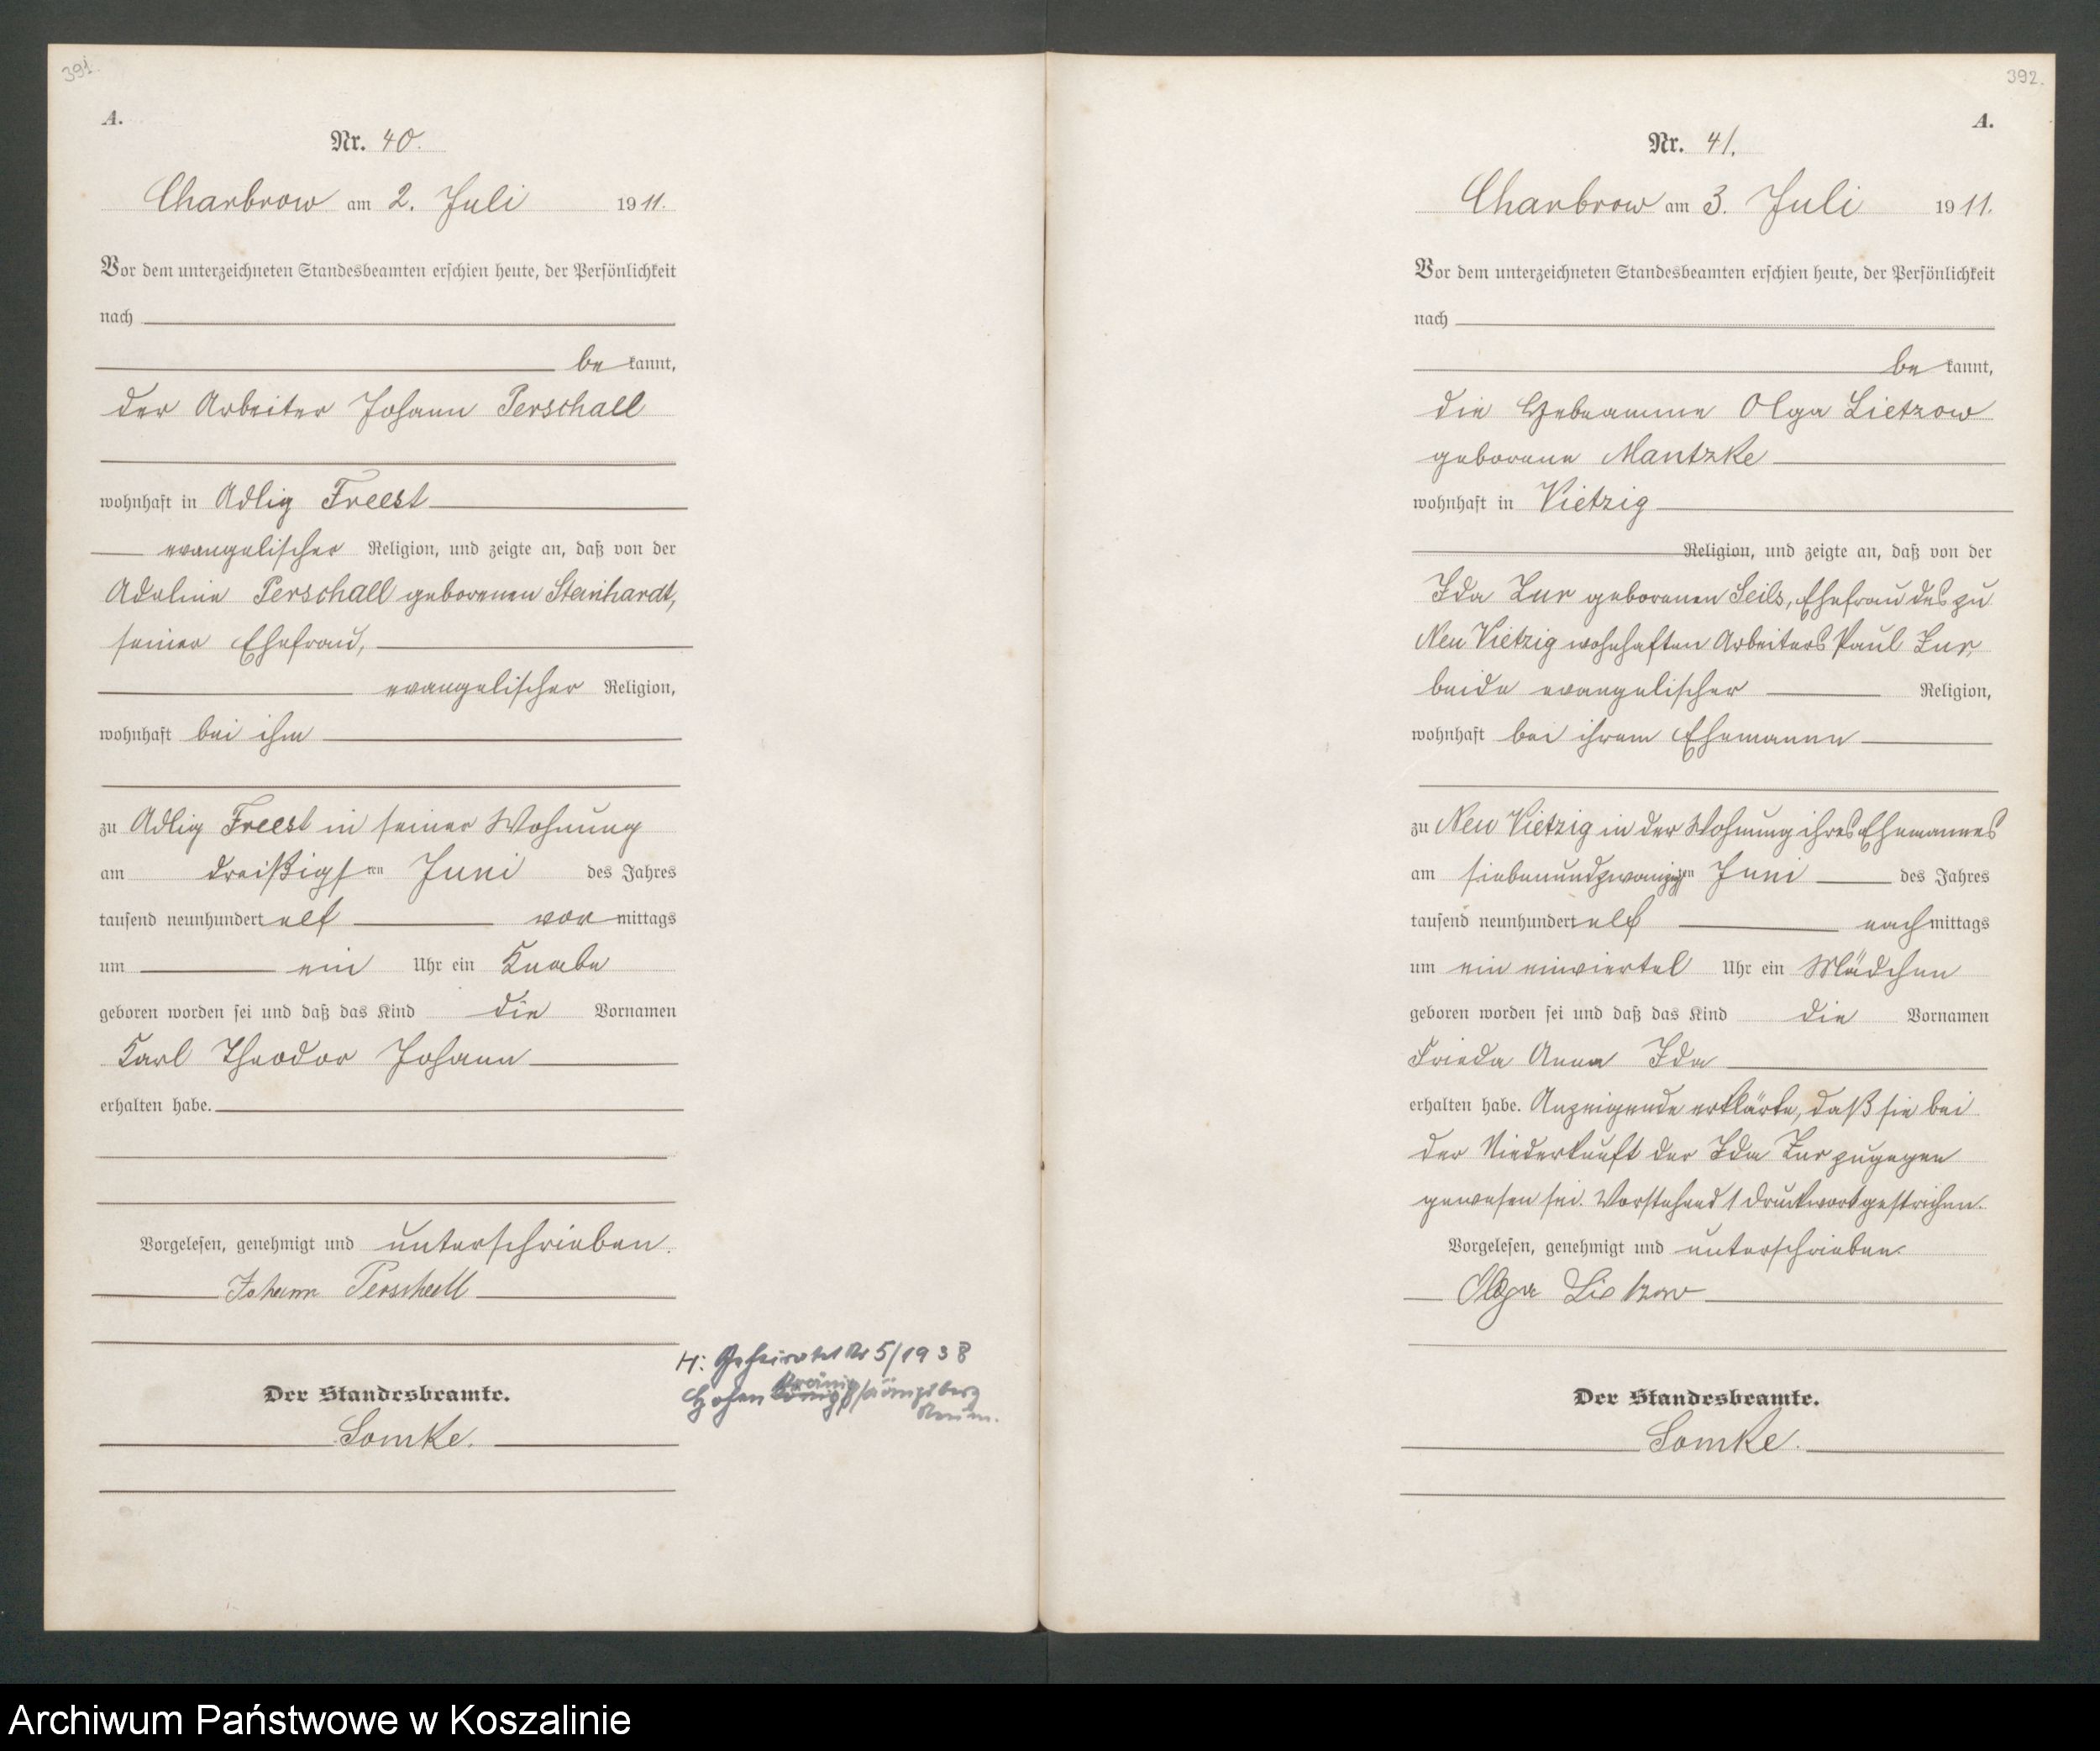 391.
A.
Nr. 40.
Charbrow am 2. Juli 1911.
Vor dem unterzeichneten Standesbeamten erschien heute, der Persönlichkeit
nach
be kannt,
der Arbeiter Johann Perschall
wohnhaft in Adlig Freest
evangelischer Religion, und zeigte an, daß von der
Adeline Perschall geborenen Steinhardt,
seiner Ehefrau,
evangelischer Religion,
wohnhaft bei ihm
zu Adlig Freest in seiner Wohnung
am dreißigsten Juni des Jahres
tausend neunhundert elf vor mittags
um ein Uhr ein Knabe
geboren worden sei und daß das Kind die Vornamen
Karl Theodor Johann
erhalten habe.
Vorgelesen, genehmigt und unterschrieben.
Johann Perschall
H: Geheiratet Nr 5/1938
Kränig
Hohen /Königsberg
Neum.
Der Standesbeamte.
Lomke.
392.
A.
Nr. 41.
Charbrow am 3. Juli 1911.
Vor dem unterzeichneten Standesbeamten erschien heute, der Persönlichkeit
nach
be kannt,
die Hebeamme Olga Lietzow
geborene Mantzke
wohnhaft in Vietzig
Religion, und zeigte an, daß von der
Ida Zur geborenen Seils, Ehefrau des zu
Neu Vietzig wohnhaften Arbeiters Paul Zur,
beide evangelischer Religion,
wohnhaft bei ihrem Ehemanne
zu Neu Vietzig in der Wohnung ihres Ehemannes
am siebenundzwanzigsten Juni des Jahres
tausend neunhundert elf nach mittags
um ein einviertel Uhr ein Mädchen
geboren worden sei und daß das Kind die Vornamen
Frieda Anna Ida
erhalten habe. Anzeigende erklärte, daß sie bei
der Niederkunft der Ida Zur zugegen
gewesen sei. Vorstehend 1 Druckwort gestrichen.
Vorgelesen, genehmigt und unterschrieben.
Olga Lietzow
Der Standesbeamte.
Lomke.
Archiwum Państwowe w Koszalinie